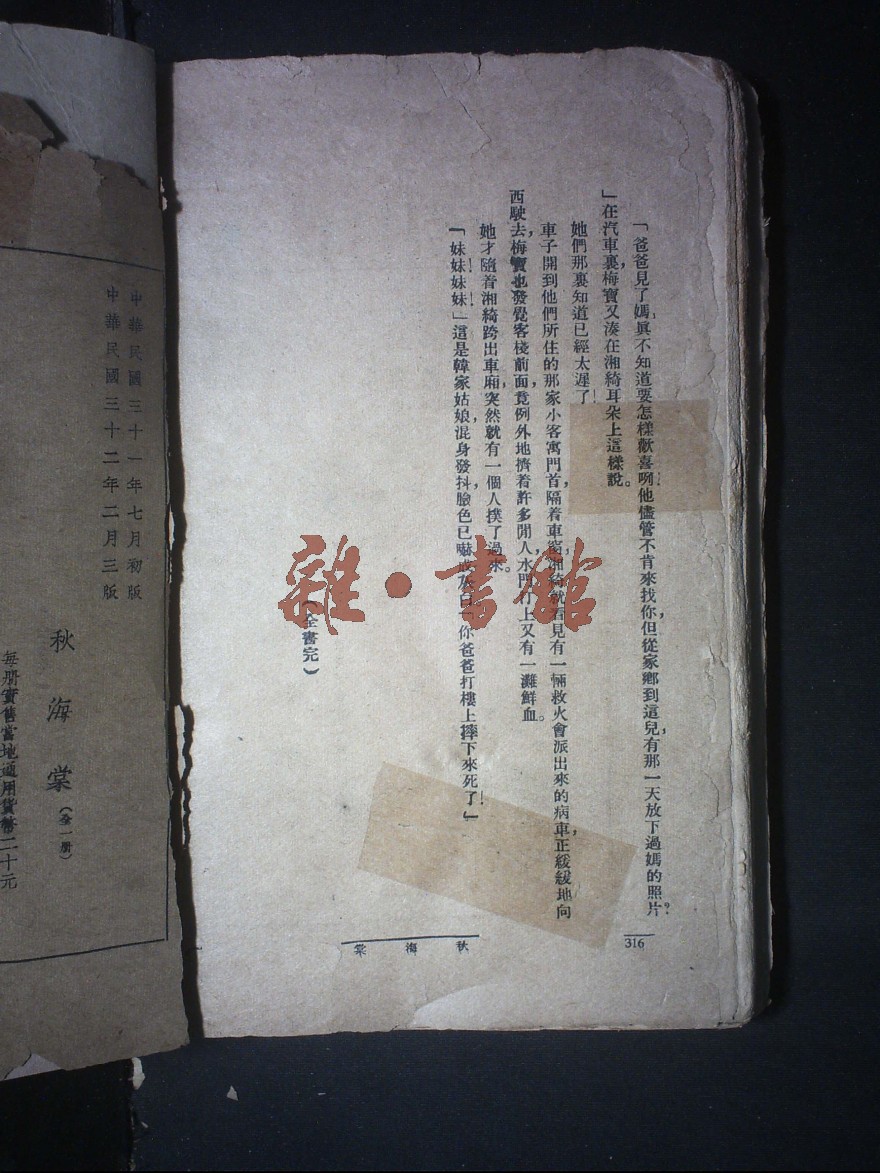 「爸爸見了媽，眞不知道要怎樣歡喜啊！他儘管不肯來找你，但從家鄉到這兒，有那一天放下過媽的照片？
」在汽車裏，梅寶又湊在湘綺耳朵上這樣說。
她們那裏知道已經太遲了！
車子開到他們所住的那家小客寓門首，隔着車窗，湘綺就看見有一輛救火會派出來的病車，正緩緩地向
西駛去，梅寶也發覺客棧前面，竟例外地擠着許多閒人，水門汀上又有一灘鮮血。
她才隨着湘綺跨出車廂，突然就有一個人撲了過來。
「妹妹！妹妹！」這是韓家姑娘，混身發抖，臉色已嚇成灰白，「你爸爸打樓上摔下來死了！」
（全書完）
316
秋海棠
中華民國三十一年七月初版
中華民國三十二年二月三版
秋海棠（全一册）
每册實售當地通用貨幣二十元
雜·書館